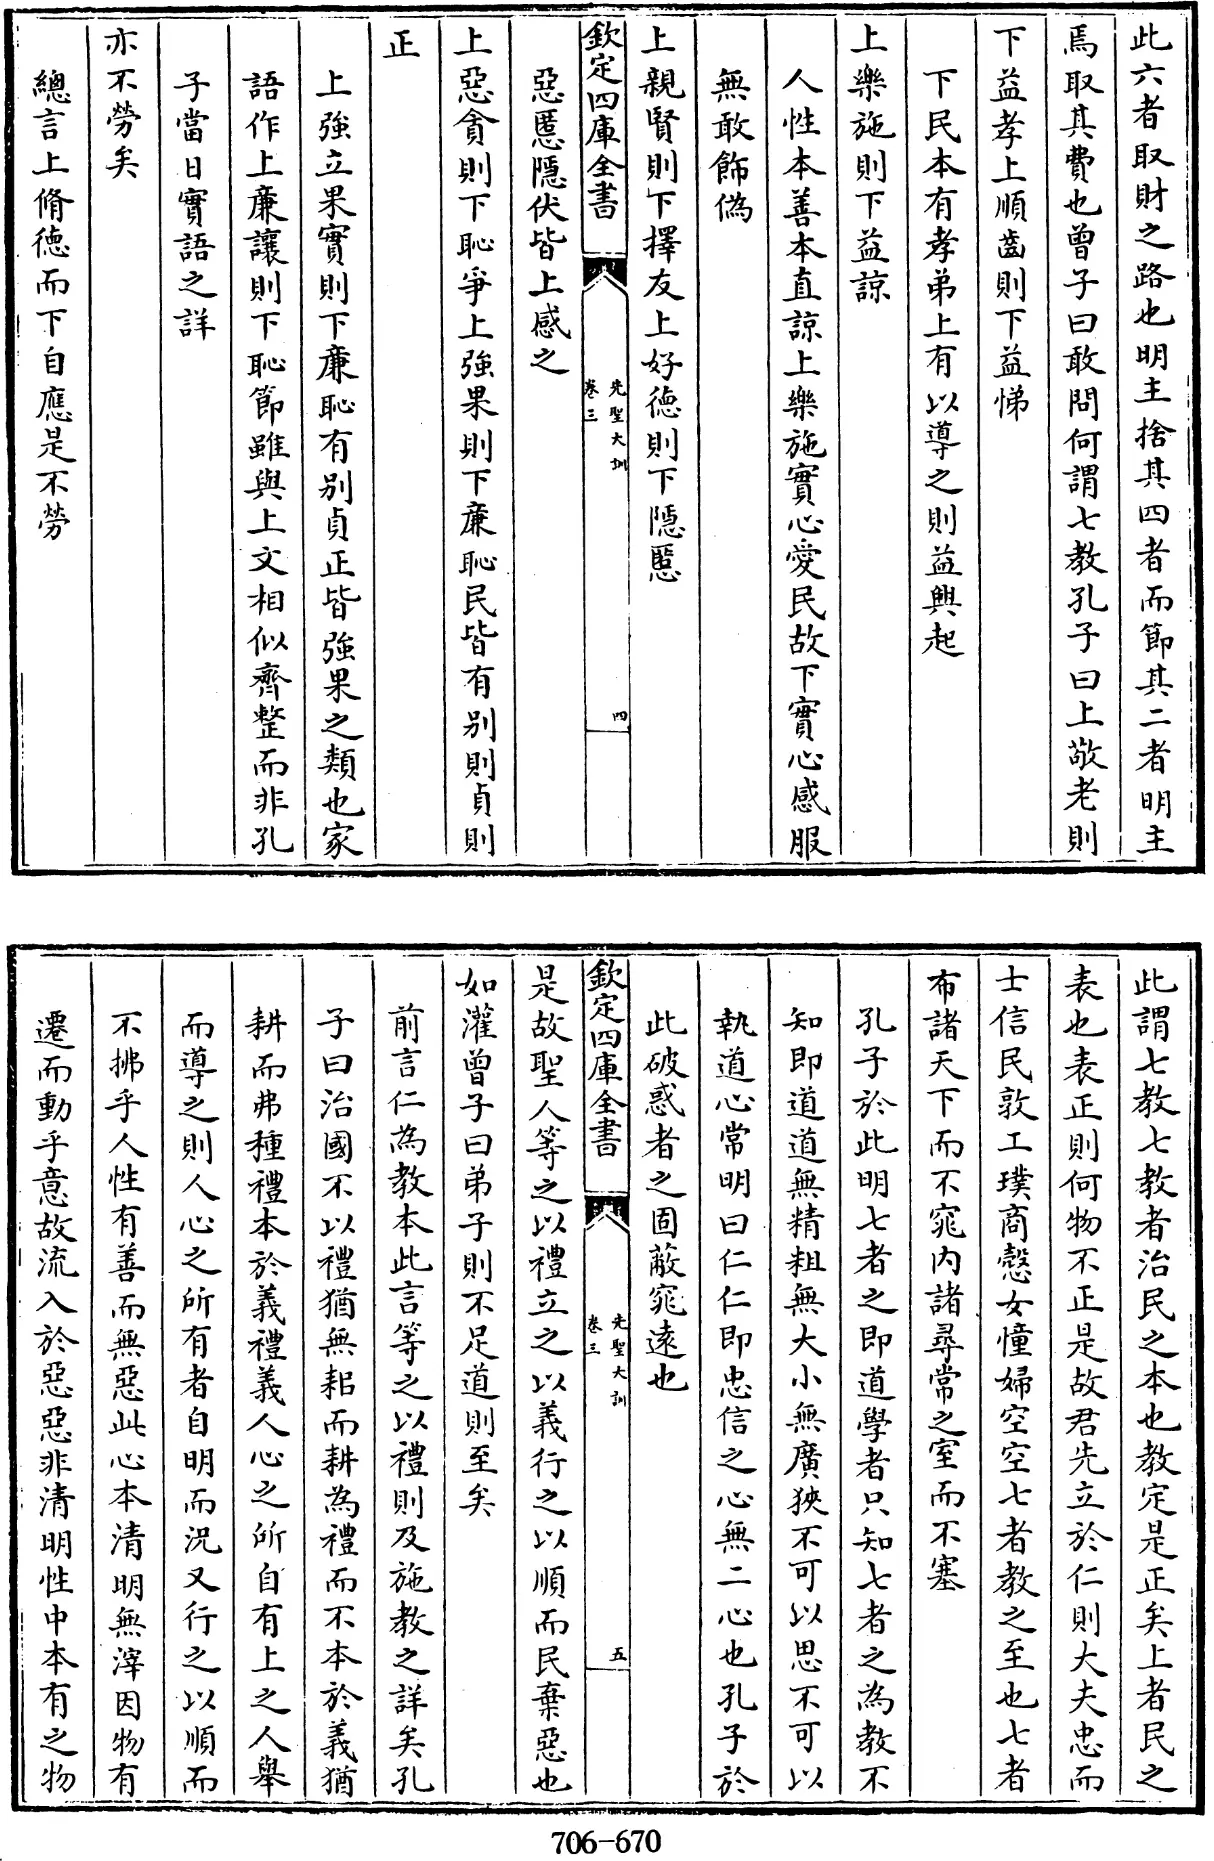 此六者取財之路也明主捨其四者而節其二者明主
焉取其費也曾子曰敢問何謂七教孔子曰上敬老則
下益孝上順齒則下益悌
下民本有孝弟上有以導之則益興起
上樂施則下益諒
人性本善本直諒上樂施實心愛民故下實心感服
無敢飾偽
上親賢則下擇友上好德則下隱慝
欽定四庫全書
先聖大訓
卷三
四
惡慝隱伏皆上感之
上惡貪則下恥爭上強果則下廉恥民皆有別則貞則
正
上強立果實則下廉恥有別貞正皆強果之類也家
語作上廉讓則下恥節雖與上文相似齊整而非孔
子當日實語之詳
亦不勞矣
總言上脩德而下自應是不勞
此謂七教七教者治民之本也教定是正矣上者民之
表也表正則何物不正是故君先立於仁則大夫忠而
士信民敦工璞商慤女憧婦空空七者教之至也七者
布諸天下而不窕內諸尋常之室而不塞
孔子於此明七者之即道學者只知七者之為教不
知即道道無精粗無大小無廣狹不可以思不可以
執道心常明曰仁仁即忠信之心無二心也孔子於
此破惑者之固蔽窕遠也
欽定四庫全書
先聖大訓
卷三
五
是故聖人等之以禮立之以義行之以順而民棄惡也
如灌曾子曰弟子則不足道則至矣
前言仁為教本此言等之以禮則及施教之詳矣孔
子曰治國不以禮猶無耜而耕為禮而不本於義猶
耕而弗種禮本於義禮義人心之所自有上之人舉
而導之則人心之所有者自明而況又行之以順而
不拂乎人性有善而無惡此心本清明無滓因物有
遷而動乎意故流入於惡惡非清明性中本有之物
706-670